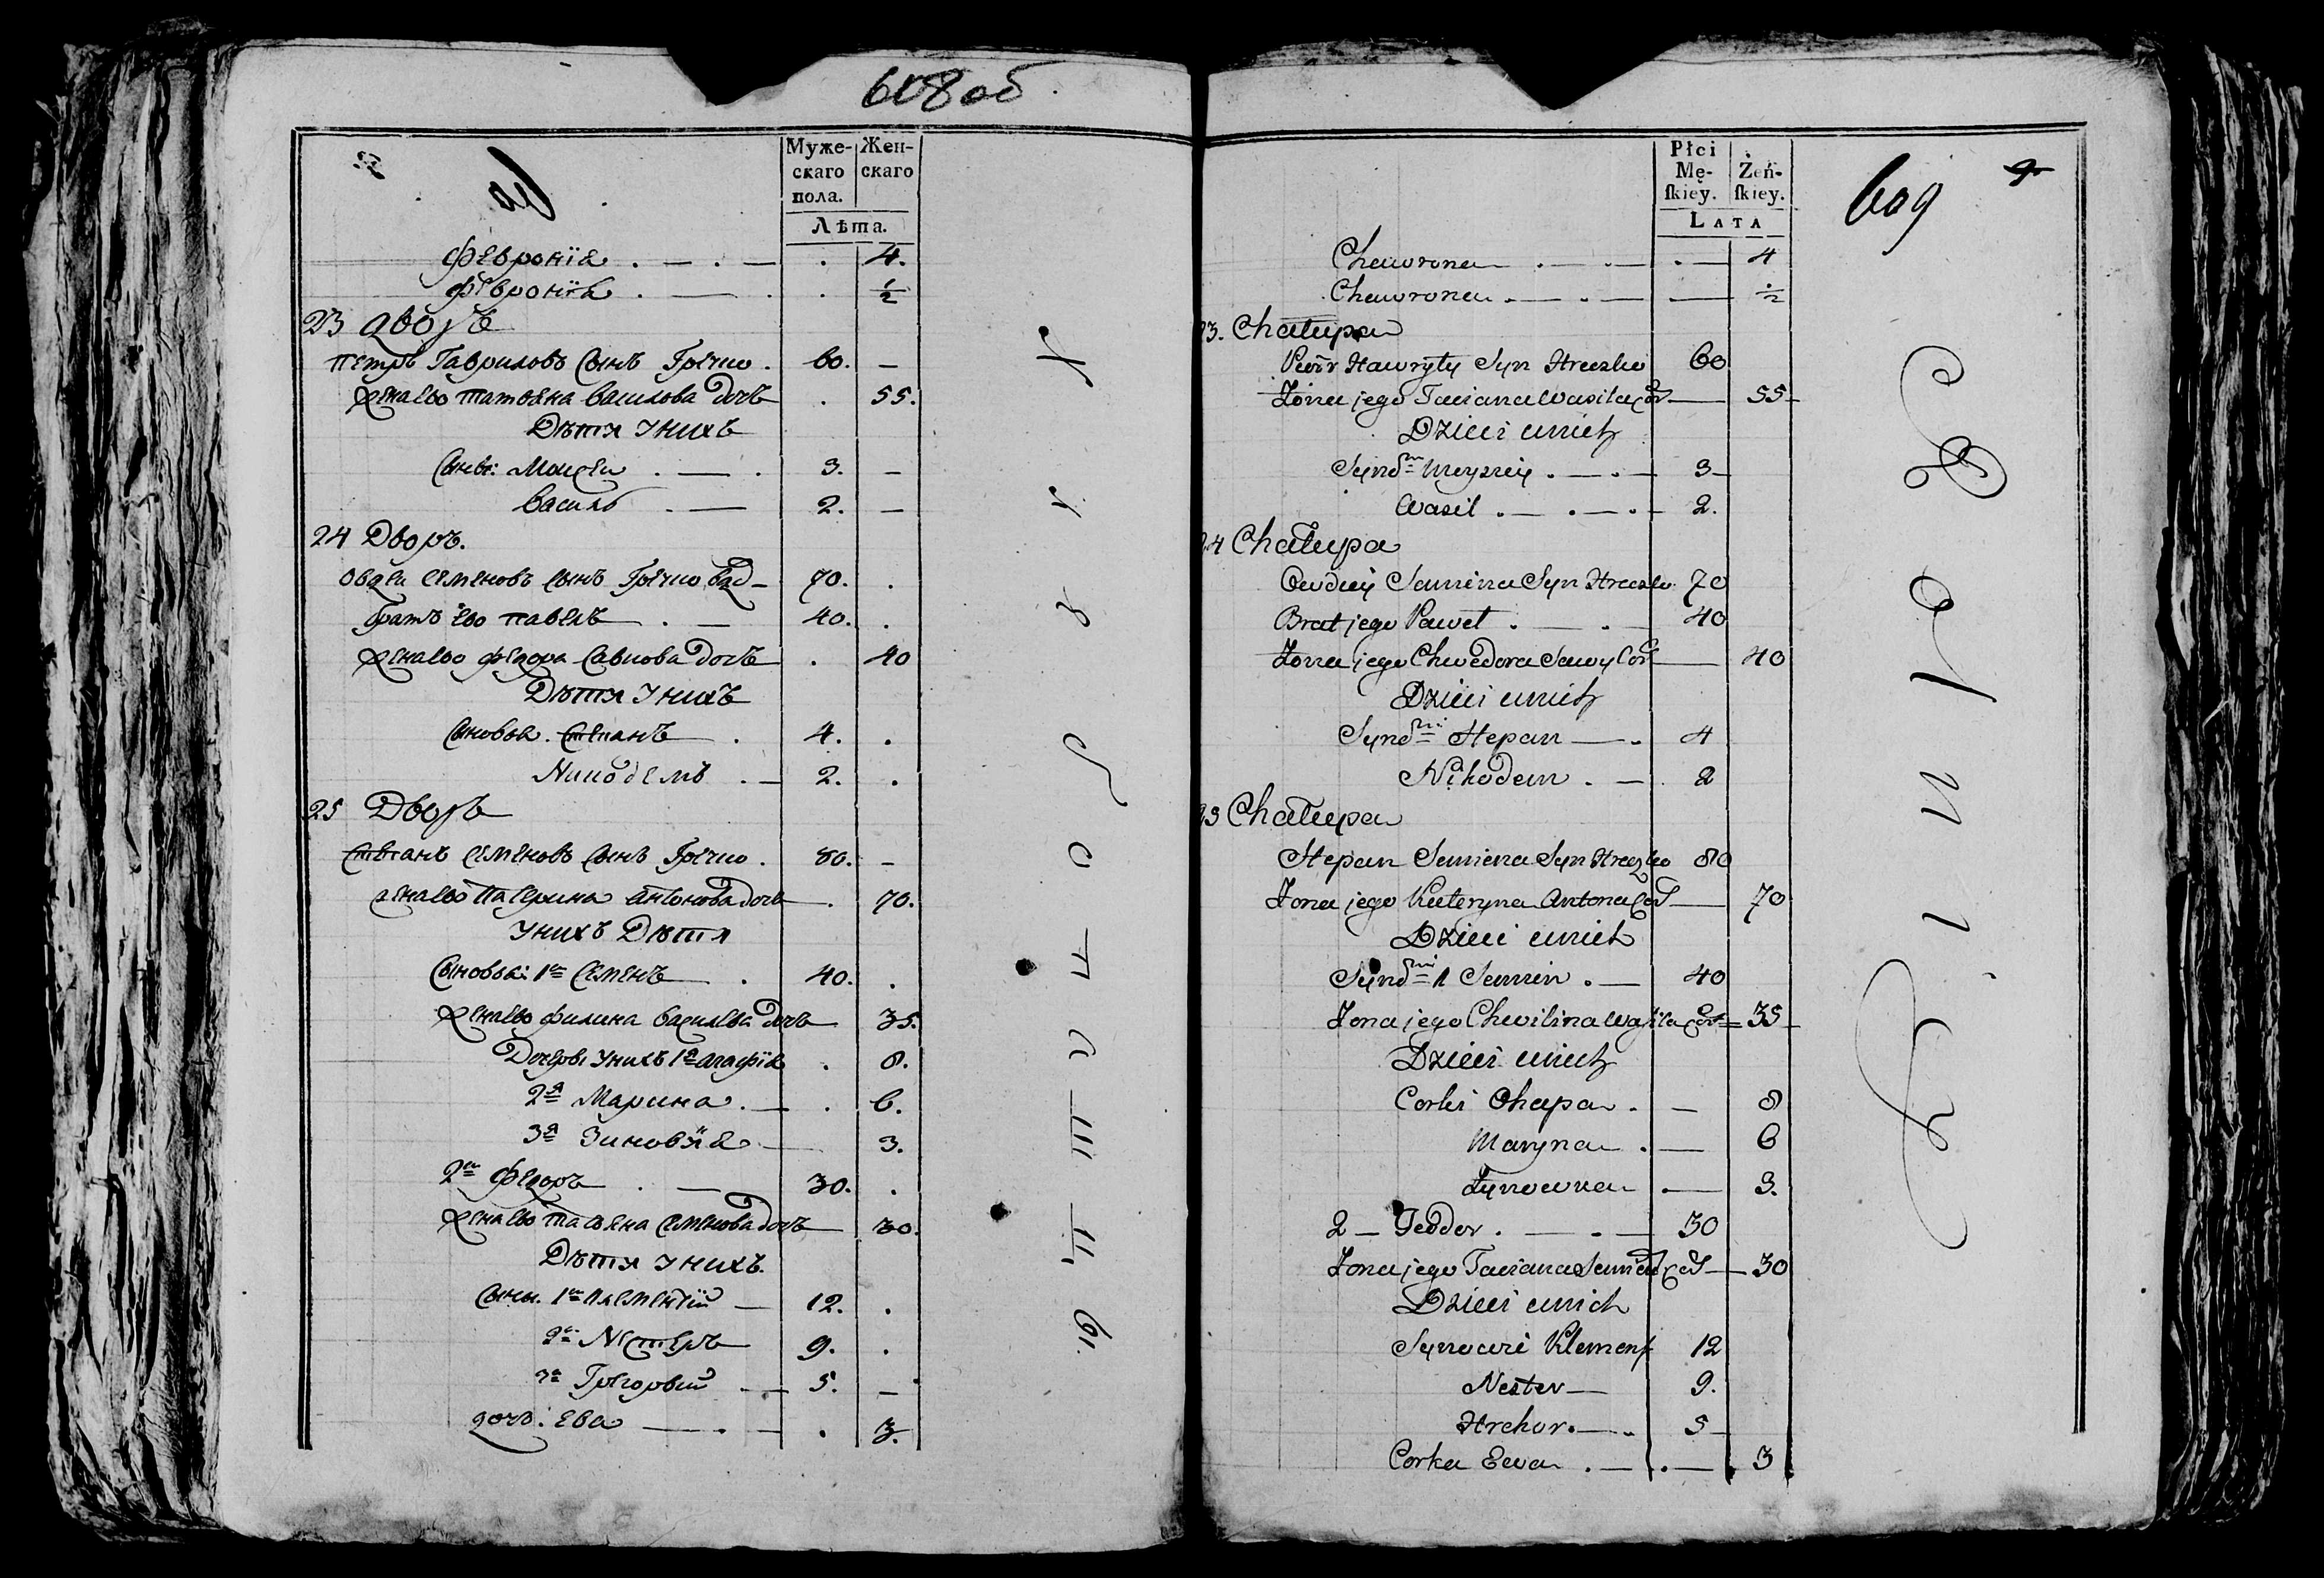 608об
Муже-
скаго
пола.
Жен-
скаго
Лѣта.
Февронїя . — . — . 4.
Февронїя . — . . ½
23 дворъ
Петръ Гавриловъ Сынъ Гречко . 60. —
жена ево Татьяна Василова дочъ . 55.
Дѣти У нихъ
Сынъ: Моисей . — . 3. —
Василь . — 2. —
24 Дворъ.
Овдей Семеновъ Сынъ Гречко вд — 70. .
братъ ево Павелъ . — 40. .
жена ево Федора Савкова дочъ . 40
Дѣти У нихъ
Сыновья. Степанъ . 4. .
Никодемъ . — 2. .
25 Дворъ
Степанъ Семеновъ Сынъ Гречко . 80. —
жена ево Катерина Антонова дочъ . 70.
У нихъ Дѣти
Сыновья: 1й Семенъ . 40. .
жена ево Филина Василева дочъ 35.
Дочери У нихъ 1я Агафїя . 8.
2я Марина . — . 6.
3я Зиновїя — 3.
2й Федоръ . — 30. .
жена ево Татьяна Семенова дочъ — 30.
Дѣти У нихъ.
Сыны. 1й Клементїй — 12. .
2й Нестеръ 9. .
3й Грегорьий . — 5. —
дочь: Ева — . — . 3.
609
Płci
Mę-
ſkiey.
Żeń-
ſkiey.
LATA
Chewrona . — . — . — 4
Chewrona . — . — — ½
23. Chałupa
Piotr Hawryły Syn Hreczko 60
Żona jego Taciana Wasila Cór — 55 —
Dzieci u nich
Syno Moyziey . — . — 3 —
Wasil . — . — . — 2.
24 Chałupa
Owdiey Samina Syn Hreczko 70
Brat jego Paweł . — . — 40
Żona jego Chwedora Sawy Cor — 40
Dzieci u nich
Syno Stepan — . 4
Nikodem . — . 2
25 Chałupa
Stepan Semiena Syn Hreczko 80
Żona jego Kateryna Antona Cor — 70
Dzieci u nich
Syno 1 Semien . — 40
Żona jego Chwilina Wasila Cor — 35 —
Dzieci u nich
Corki Ohapa . — 8
Maryna . — 6
Zynowia — 3.
2 — Teodor . — . — 30
Żona jego Taciana Semiena Cor — 30
Dzieci u nich
Synowie Klement 12
Nester — 9.
Hrehor . — . 5 —
Corka Ewa . — . — . 3